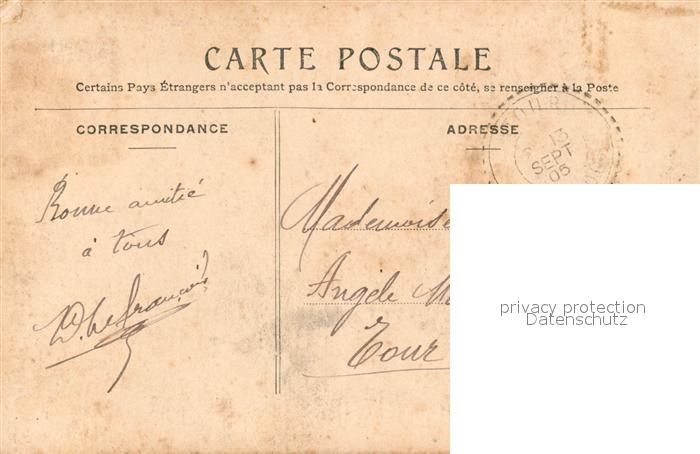 CARTE POSTALE
Certains Pays Étrangers n'acceptant pas la Correspondance de ce côté, se renseigner à la Poste
CORRESPONDANCE
ADRESSE
Bonne amitié
à tous
Mademoise
Angèle M
Tour
privacy protection
Datenschutz